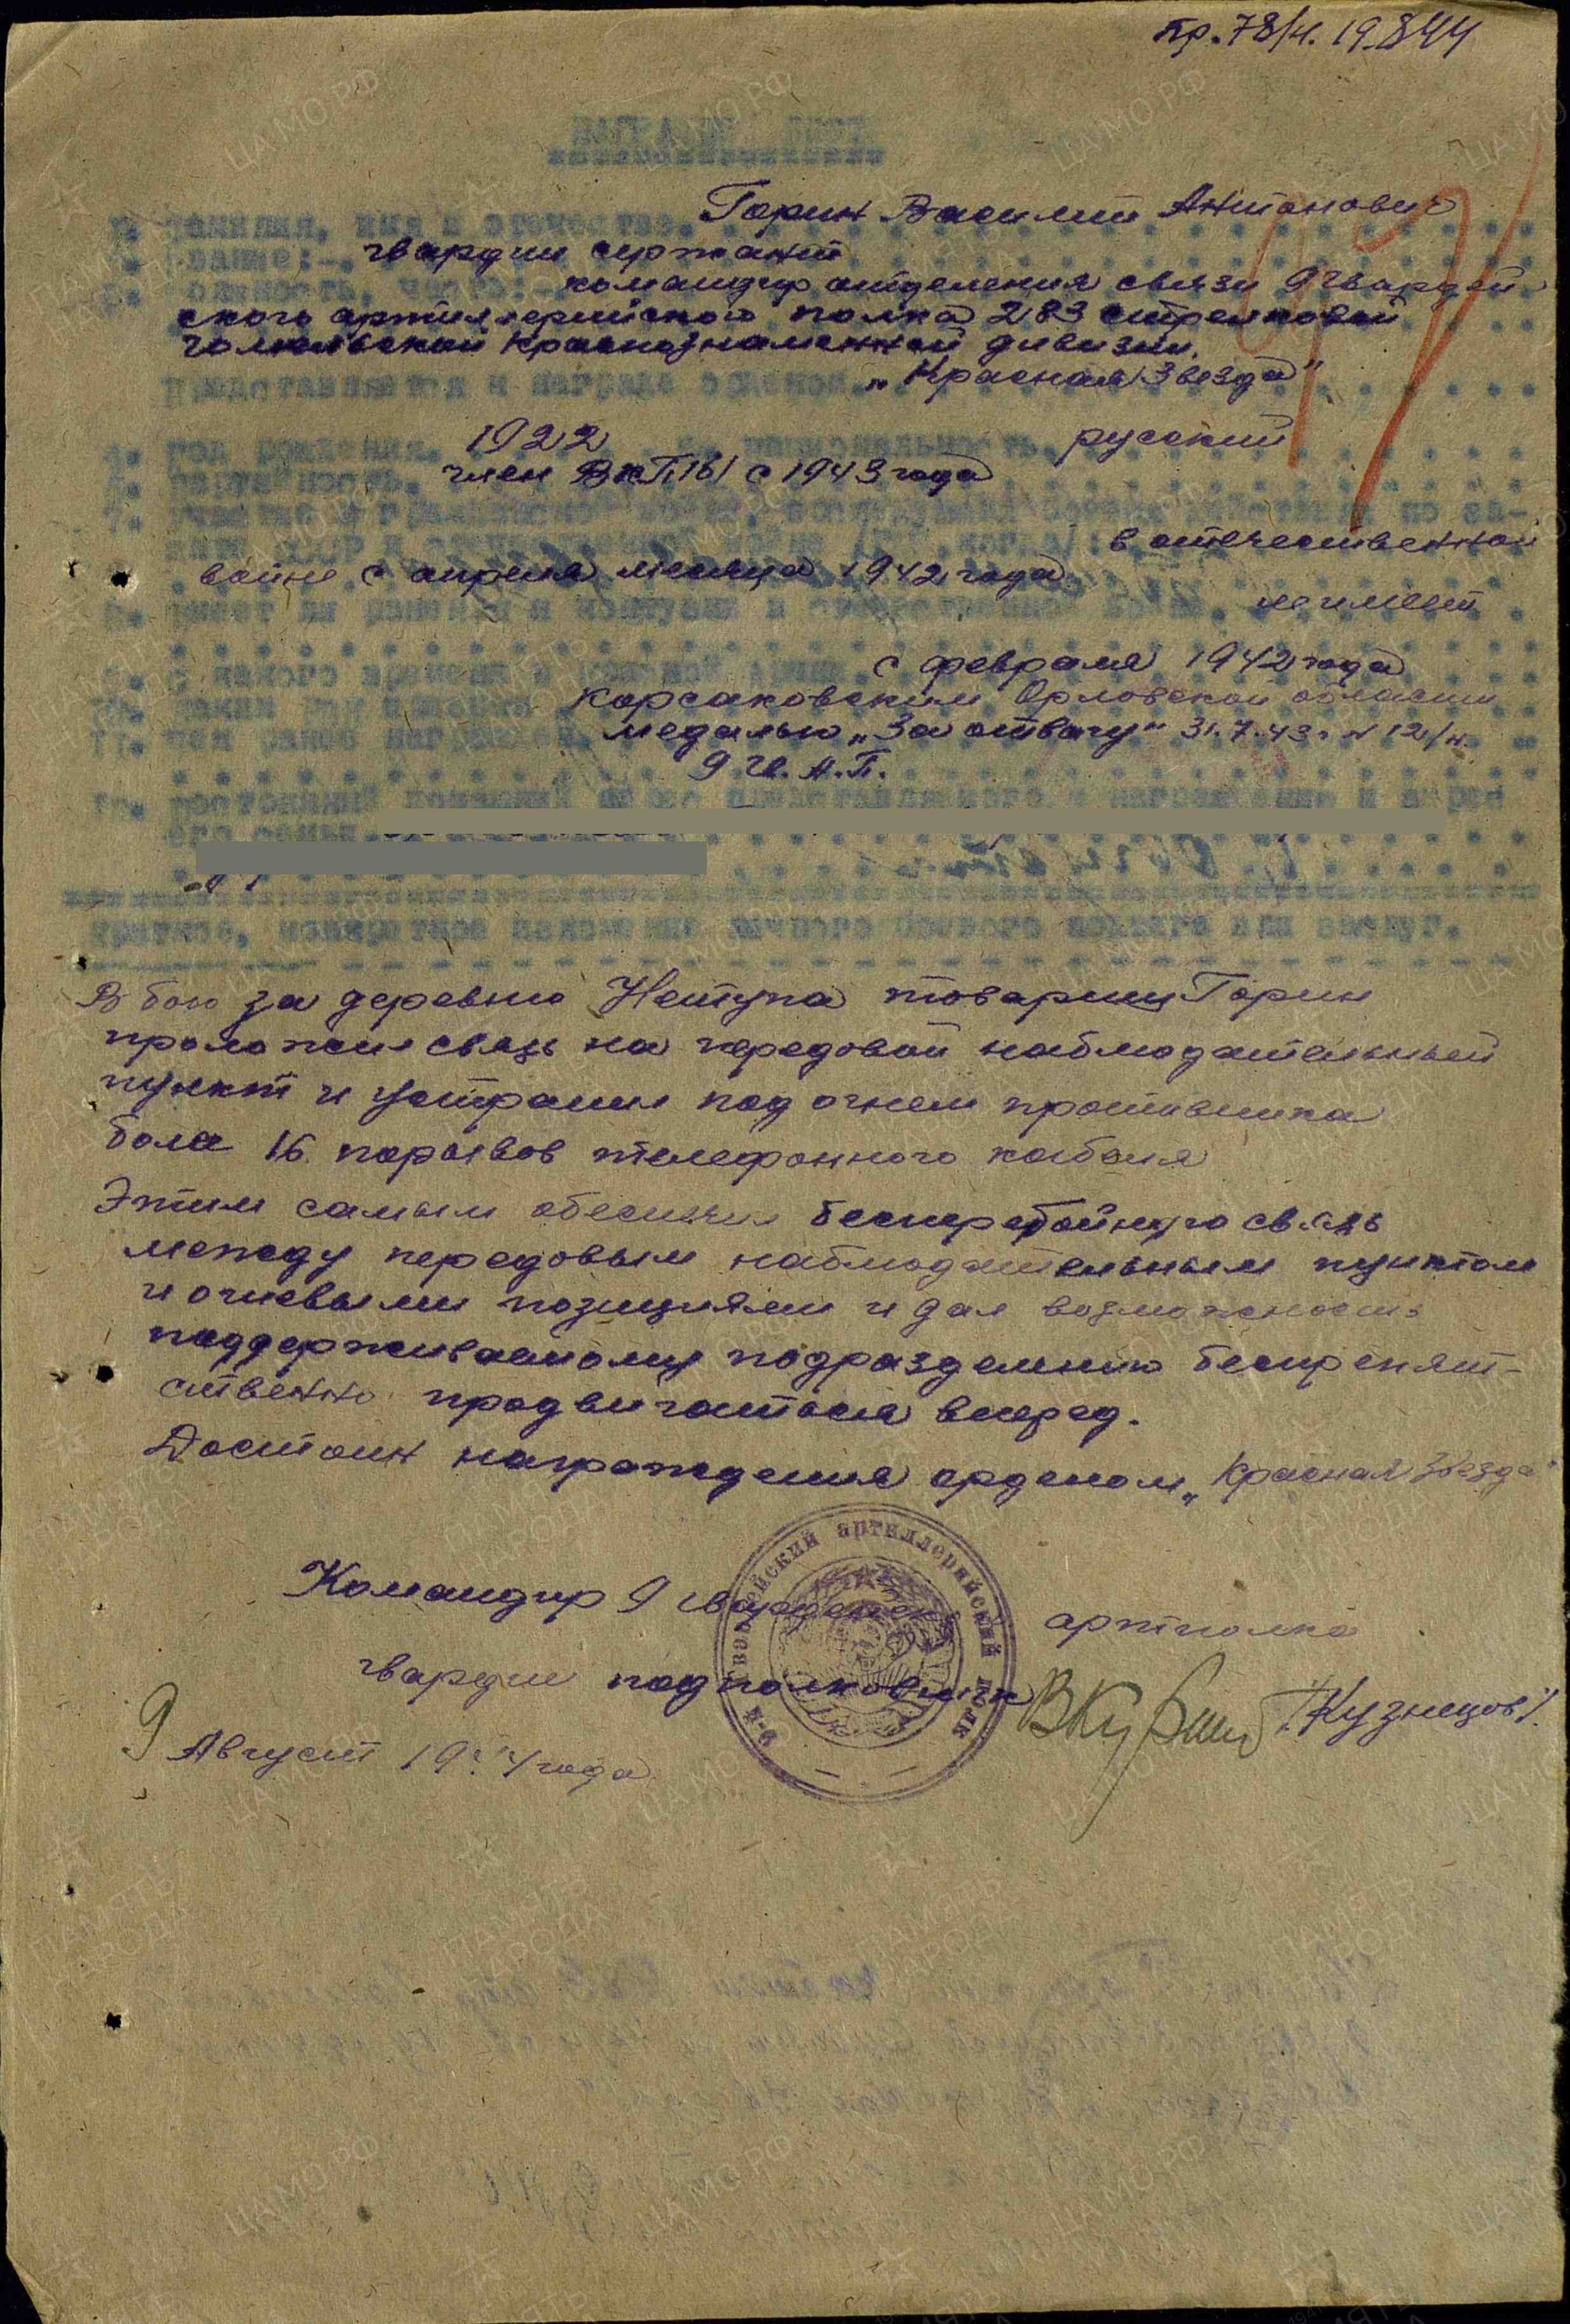 пр. 78/н. 19.8.44
НАГРАДНОЙ ЛИСТ
1. Фамилия, имя и отчество. Горин Василий Антонович
2. Звание:- гвардии сержант
3. Должность, часть:- командир отделения связи 9 гвардей
ского артиллерийского полка 283 стрелковой
гомельской краснознаменной дивизии.
Представляется к награде орденом „Красная Звезда"
4. Год рождения. 1922 5. национальность. русский
6. партийность. член ВКП/б/ с 1943 года
7. участие в гражданской войне, последующих боевых действиях по за-
щите СССР и отечественной войне (где, когда): в отечественной
войне с апреля месяца 1942 года
8. имеет ли ранения и контузии в отечественной войне. не имеет
9. с какого времени в Красной Армии. с февраля 1942 года
10. каким РВК призван. Корсаковским Орловской области
11. чем ранее награжден. медалью „За отвагу" 31.7.43г. N 12/н.
9 Гв. А.П.
12. постоянный домашний адрес представляемого к награждению и адрес
его семьи.
краткое, конкретное изложение личного боевого подвига или заслуг.
В бою за деревню Нетупа товарищ Горин
проложил связь на передовой наблюдательный
пункт и устранил под огнем противника
боле 16 порывов телефонного кабеля
Этим самым обеспечил бесперебойную связь
между передовым наблюдательным пунктом
и огневыми позициями и дал возможность
поддерживаемому подразделению беспрепят-
ственно продвигаться вперед.
Достоин награждения орденом „Красная звезда"
Командир 9 гвардейск артполка
гвардии подполковник /Кузнецов/.
9 Август 1944 года
9-й Гвардейский артиллерийский полк